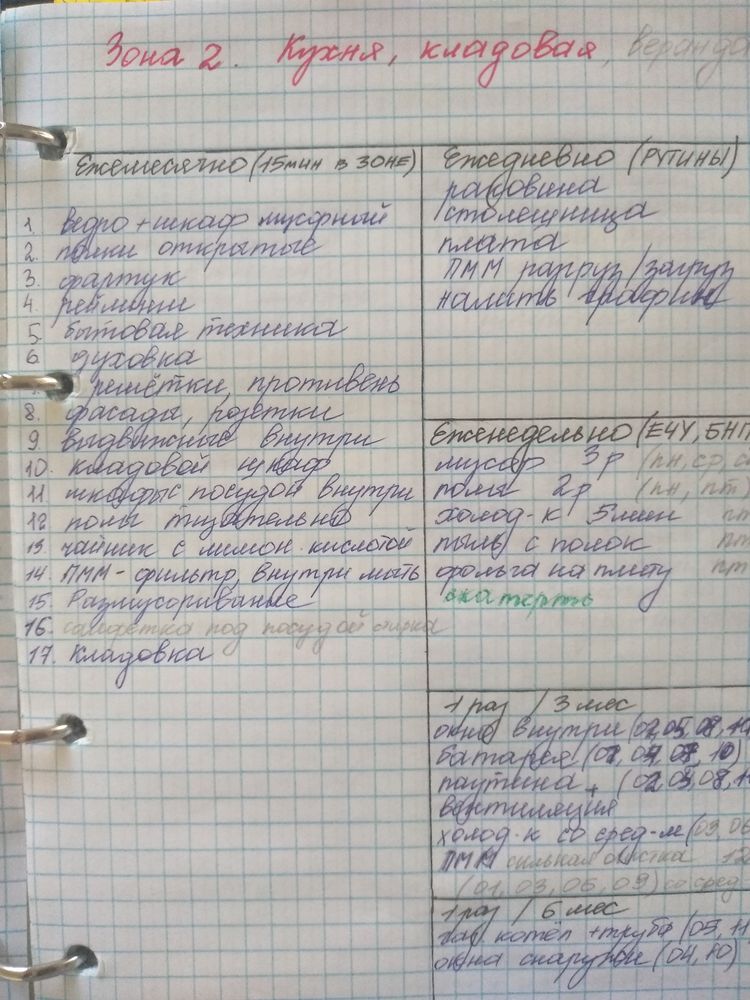 Зона 2. Кухня, кладовая, веранда
Ежемесячно (15 мин в зоне)
1. ведро + шкаф мусорный
2. полки открытые
3. фартук
4. рейлинги
5. бытовая техника
6. духовка
решётки, противень
8. фасады, розетки
9. выдвижные внутри
10. кладовой шкаф
11. шкафы с посудой внутри
12. полы тщательно
13. чайник с лимон. кислотой
14. ПММ - фильтр, внутри мыть
15. Размусоривание
16. салфетка под посудой стирка
17. Кладовка
Ежедневно (рутины)
раковина
столешница
плита
ПММ разгруз/загруз
налить графин
Еженедельно (ЕЧУ, БНП
мусор 3р (пн, ср
полы 2р (пн, пт)
холод-к 5 мин пт
пыль с полок пт
фольга на плиту пт
скатерть
1 раз / 3 мес
окно внутри (02, 05, 08,
батарея (01, 04, 07, 10)
паутина + (02, 05, 08, 11
вентиляция
холод-к со сред-м (03, 06
ПММ сильная очистка 12
(01, 03, 06, 09) со сред
1 раз / 6 мес
газ котёл + труба (05, 11
окна снаружи (04, 10)